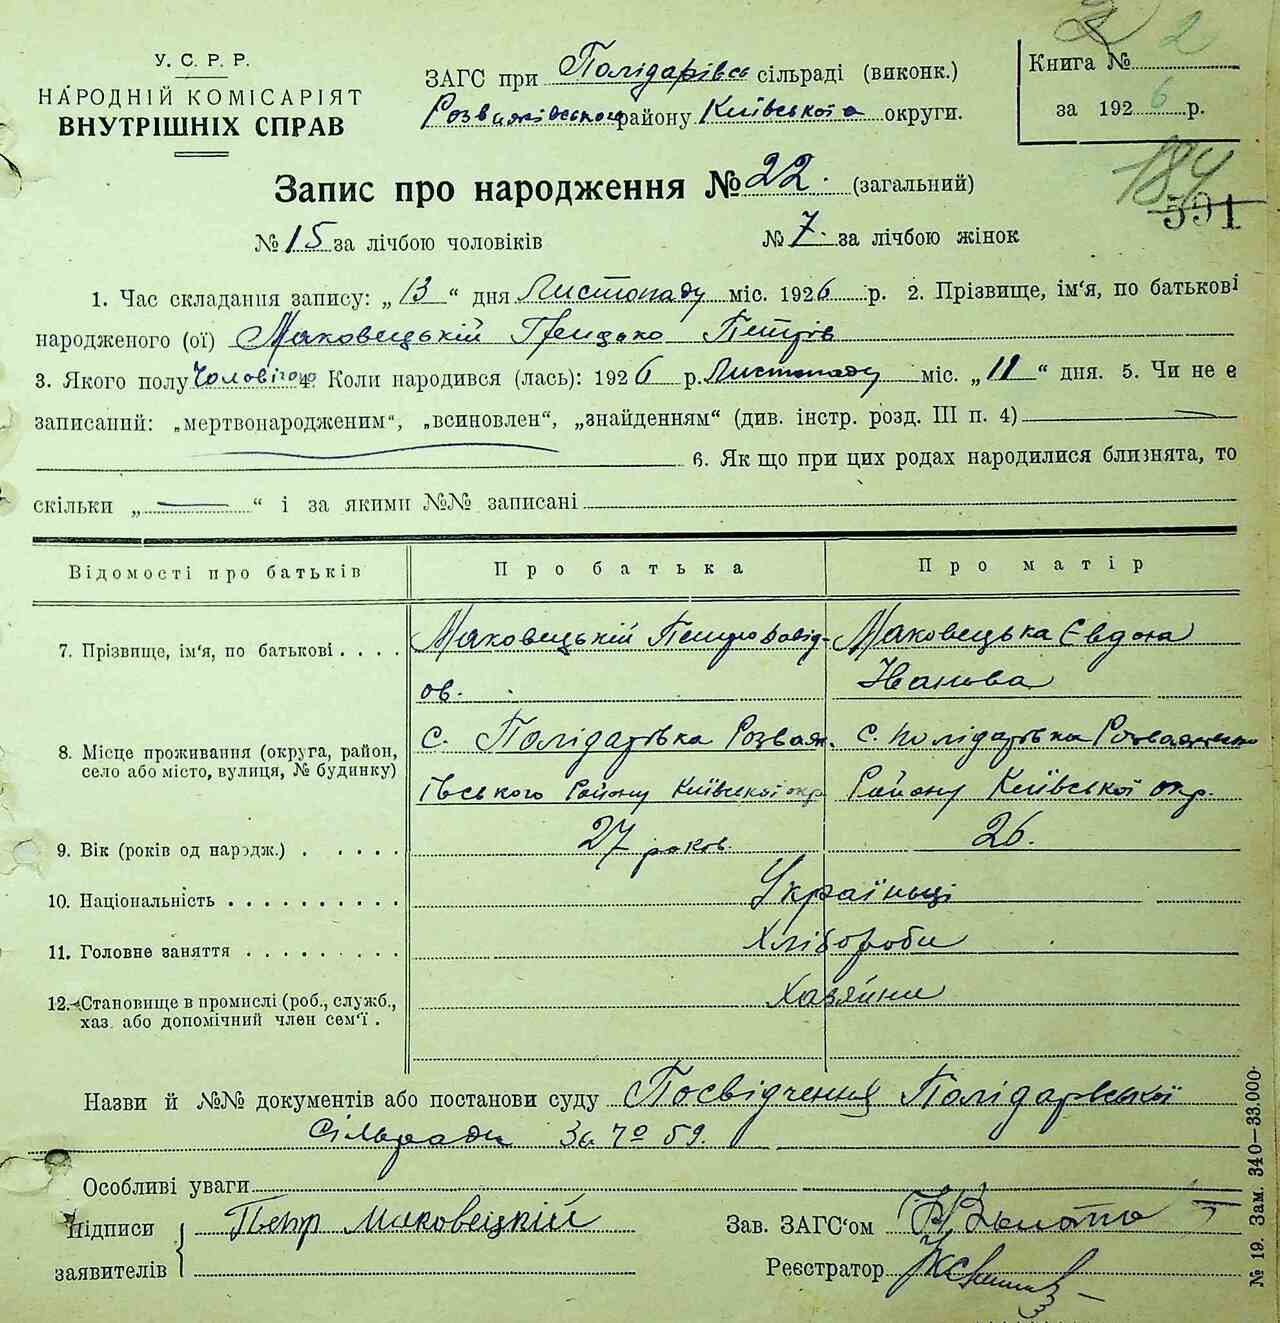 У. С. Р. Р.
НАРОДНІЙ КОМІСАРІЯТ
ВНУТРІШНІХ СПРАВ
ЗАГС при Полідарівс сільраді (виконк.)
Розважівського району Київської округи.
Книга № 2
за 1926 р.
184
591
Запис про народження № 22. (загальний)
№ 15 за лічбою чоловіків № 7. за лічбою жінок
1. Час складання запису: „13“ дня Листопаду міс. 1926 р. 2. Прізвище, ім'я, по батькові
народженого (ої) Маковецькій Грицько Петрів
3. Якого полу Чоловічого 4. Коли народився (лась): 1926 р. Листопаду міс. „11“ дня. 5. Чи не є
записаний: „мертвонародженим“, „всиновлен“, „знайденням“ (див. інстр. розд. III п. 4)
6. Як що при цих родах народилися близнята, то
скільки „ — “ і за якими №№ записані
Відомості про батьків Про батька Про матір
7. Прізвище, ім'я, по батькові . . . . Маковецькій Петро Давід- Маковецька Євдоха
ов. Иванова
8. Місце проживання (округа, район, с. Полідарівка Розваж. с. Полідарівка
село або місто, вулиця, № будинку) Івського Району Київської окр. Району Київської окр.
9. Вік (років од народж.) . . . . . 27 роков. 26.
10. Національність . . . . . . . . . . Українці
11. Головне заняття . . . . . . . . . Хлібороби
12. Становище в промислі (роб., служб., Хазяйни
хаз. або допомічний член сем'ї .
Назви й №№ документів або постанови суду Посвідчення Полідарівської
Сільради За № 59.
Особливі уваги
Підписи Петр Маковецкій Зав. ЗАГС'ом
заявителів Реєстратор
№ 19. Зам. 340—33.000·